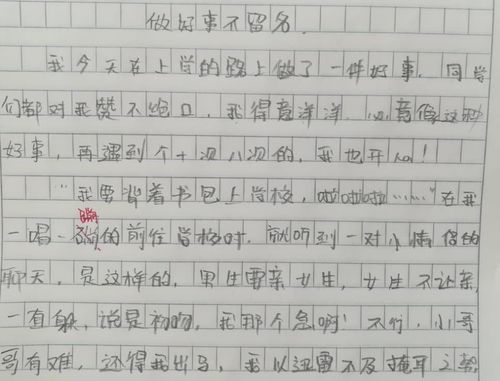 做好事不留名
我今天在上学的路上做了一件好事，同学
们都对我赞不绝口，我得意洋洋，心意像这种
好事，再遇到个十次八次的，我也开心！
“我要背着书包上学校，啦啦啦……”在我
一唱一蹦的前往学校时，就听到一对小情侣的
聊天，是这样的，男生要亲女生，女生不让亲，
一直躲，说是初吻，我那个急啊！不行，小哥
哥有难，还得我出马，我以迅雷不及掩耳之势